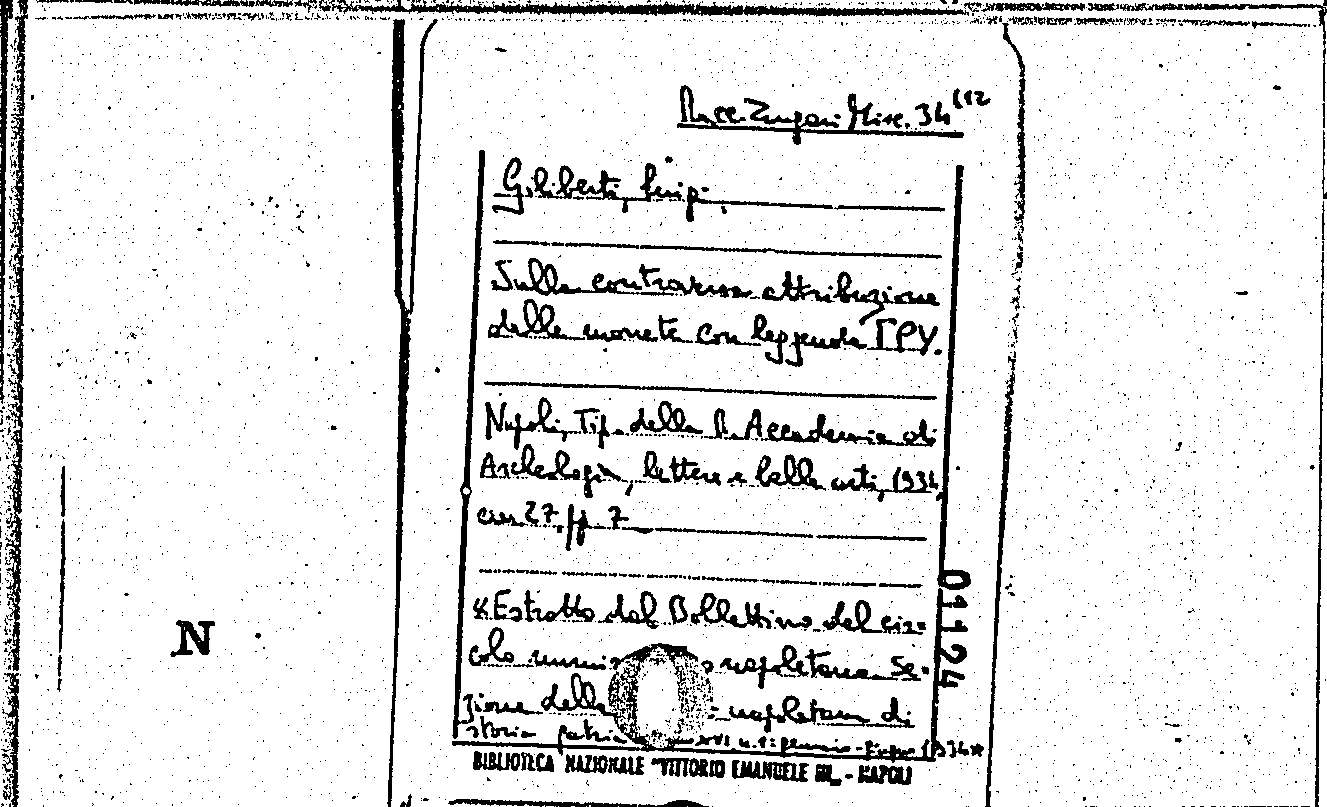 Racc. Zangari Misc. 34
Giliberti, Luigi.
Sulla controversa attribuzione
delle monete con leggenda ΓΡΥ.
Napoli, Tip. della R. Accademia di
Archeologia, lettere e belle arti, 1934,
cm 27, pp. 7
«Estratto dal Bollettino del cir-
colo numis o napoletano Se-
zione della napoletana di
storia patria n. 1: gennaio-giugno 1934»
BIBLIOTECA NAZIONALE "VITTORIO EMANUELE III" - NAPOLI
01124
N